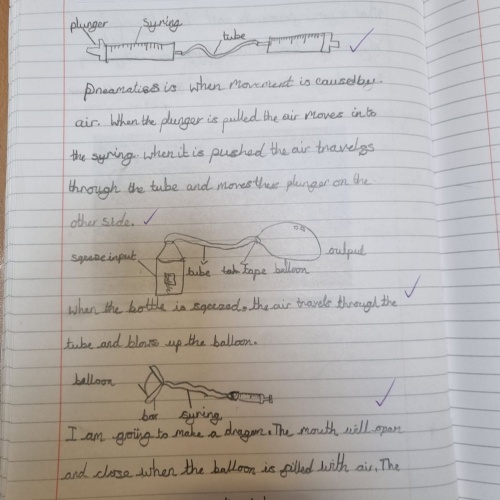 plunger syring tube
Pneamatics is when movement is caused by
air. When the plunger is pulled the air moves into
the syring when it is pushed the air travels
through the tube and moves the plunger on the
other side.
squeeze input tube tape balloon output
when the bottle is sqeezed, the air travels through the
tube and blows up the balloon.
balloon
box syring
I am going to make a dragon. The mouth will open
and close when the balloon is filled with air. The